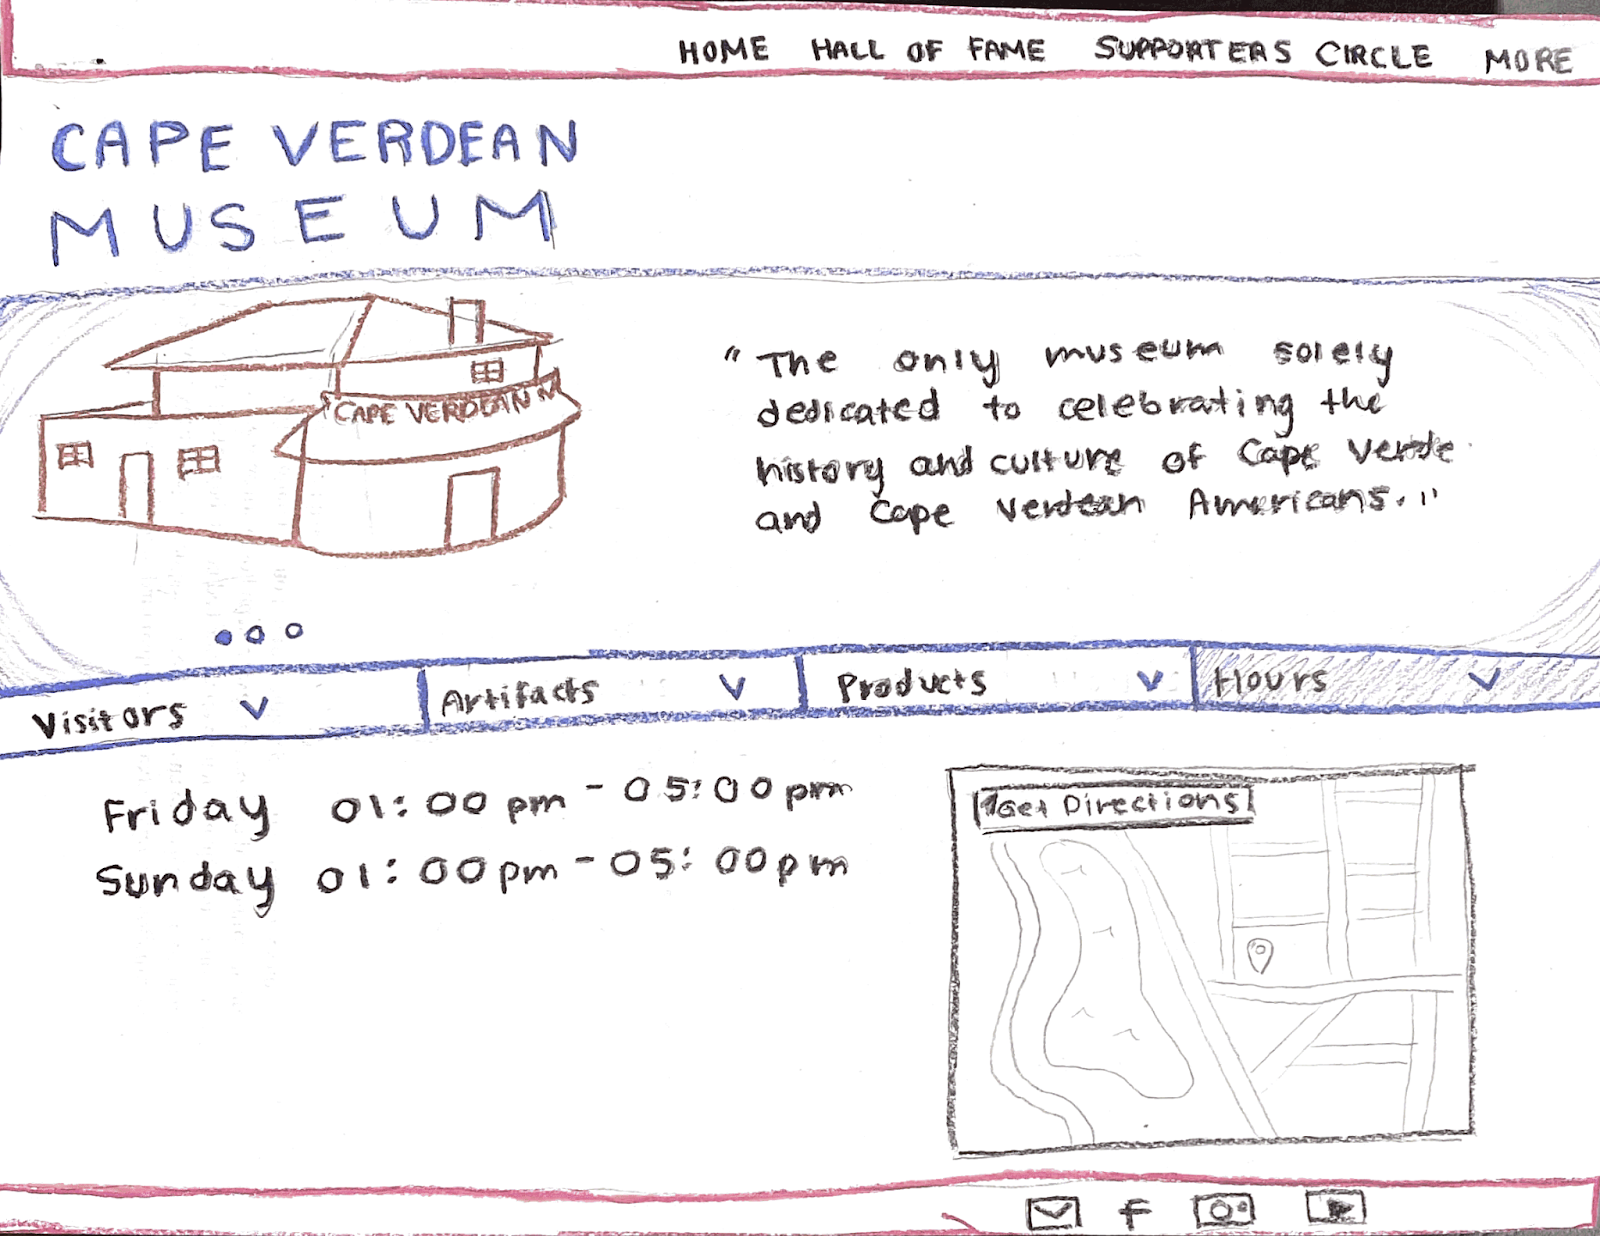 HOME HALL OF FAME SUPPORTERS CIRCLE MORE
CAPE VERDEAN
MUSEUM
CAPE VERDEAN M
" The only museum solely
dedicated to celebrating the
history and culture of Cape Verde
and Cape Verdean Americans."
Visitors Artifacts Products Hours
Friday 01:00 pm - 05:00 pm
Sunday 01:00 pm - 05:00 pm
Get Directions
f